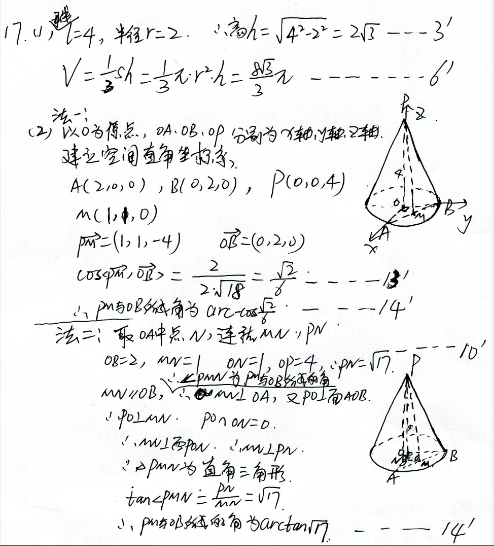 17. (1) l=4, 半径r=2. ∴高h=√(4²-2²)=2√3 --- 3'
V=1/3 Sh=1/3 π·r²·h=8√3/3 π ------ 6'
法一:
(2) 以O为原点, OA.OB.OP 分别为x轴.y轴.z轴.
建立空间直角坐标系,
A(2,0,0), B(0,2,0), P(0,0,4)
M(1,1,0)
PM=(1,1,-4) OB=(0,2,0)
cos<PM,OB>=2/(2·√18)=√2/6 ---- 13'
∴PM与OB所成角为 arccos√2/6 ---- 14'
法二: 取OA中点N, 连接MN, PN
OB=2, MN=1 ON=1, OP=4, ∴PN=√17 --- 10'
∴∠PMN为PM与OB所成的角
MN∥OB, ∴MN⊥OA, 又PO⊥面AOB.
∴PO⊥MN. PO∩ON=O.
∴MN⊥面PON. ∴MN⊥PN.
∴△PMN为直角三角形.
tan∠PMN=PN/MN=√17
∴PM与OB所成的角为arctan√17 --- 14'
P
z
4
O
M
B
y
A
x
P
N
O
M
A
B